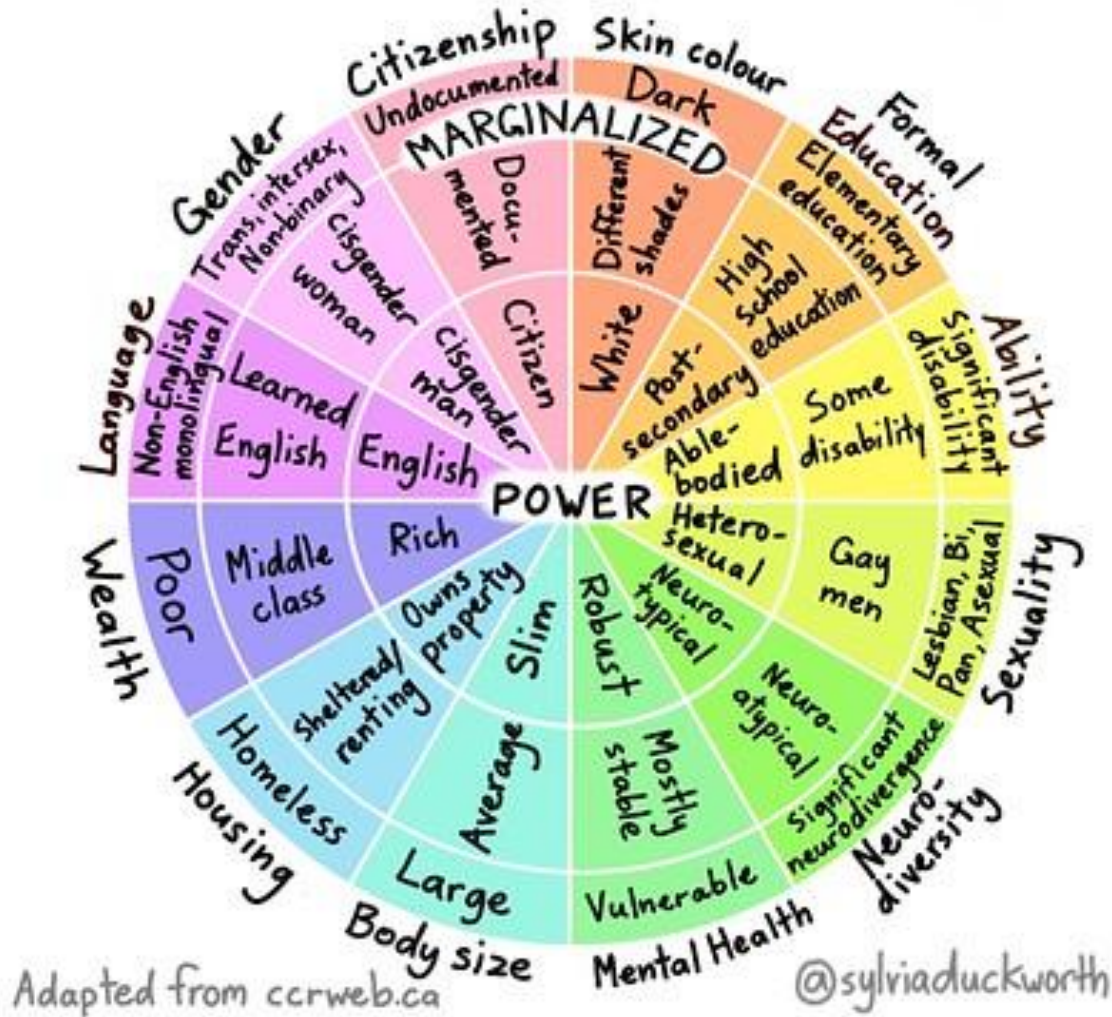 Citizenship
Undocumented
Docu-
mented
Citizen
Skin colour
Dark
Different
shades
White
Formal
Education
Elementary
education
High
school
education
Post-
secondary
Ability
Significant
disability
Some
disability
Able-
bodied
Sexuality
Lesbian, Bi,
Pan, Asexual
Gay
men
Hetero-
sexual
Neuro-
diversity
Significant
neurodivergence
Neuro-
atypical
Neuro-
typical
Mental Health
Vulnerable
Mostly
stable
Robust
Body size
Large
Average
Slim
Housing
Homeless
Sheltered/
renting
Owns
property
Wealth
Poor
Middle
class
Rich
Language
Non-English
monolingual
Learned
English
English
Gender
Trans, intersex,
Nonbinary
cisgender
woman
cisgender
man
MARGINALIZED
POWER
Adapted from ccrweb.ca
@sylviaduckworth